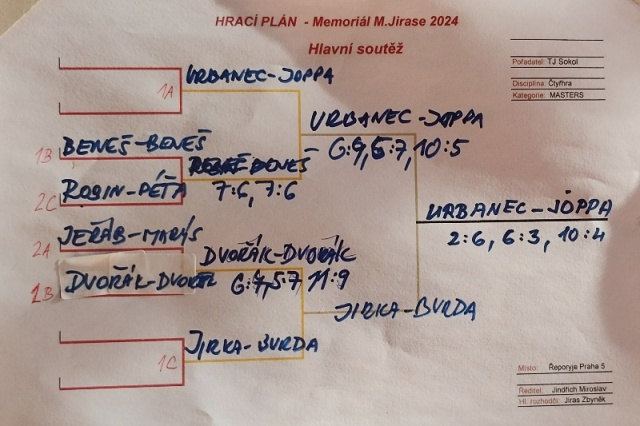 HRACÍ PLÁN - Memoriál M.Jirase 2024
Hlavní soutěž
Pořadatel: TJ Sokol
Disciplína: Čtyřhra
Kategorie: MASTERS
1A
URBANEC-JOPPA
URBANEC-JOPPA
6:4, 5:7, 10:5
1B BENEŠ-BENEŠ
BENEŠ
7:6, 7:6
2C ROBIN-PÉŤA
URBANEC-JOPPA
2:6, 6:3, 10:4
2A JEŘÁB-MARÁS
DVOŘÁK-DVOŘÁK
6:4, 5:7 11:9
1B DVOŘÁK-DVOŘÁK
JIRKA-BURDA
1C
JIRKA-BURDA
Místo: Řeporyje Praha 5
Ředitel: Jindřich Miroslav
Hl. rozhodčí: Jiras Zbyněk